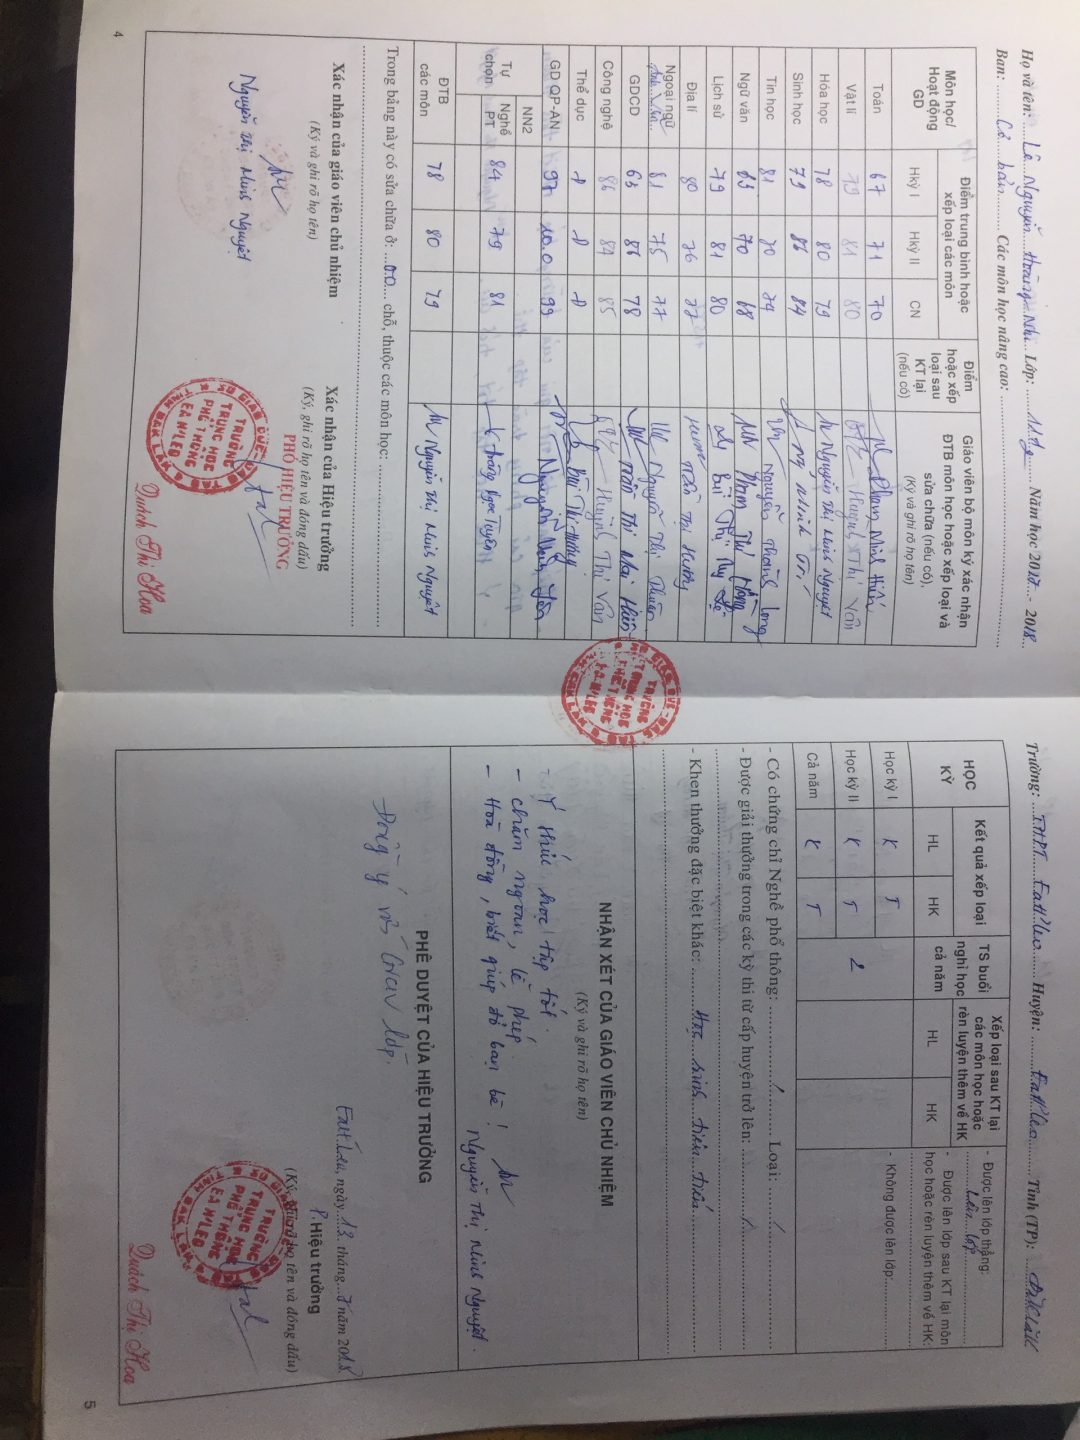 Họ và tên: Lê Nguyễn Hoàng Nhi Lớp: Năm học 2017 - 2018
Ban: Cơ bản Các môn học nâng cao:
Môn học/ Hoạt động GD
Điểm trung bình hoặc xếp loại các môn
Điểm hoặc xếp loại sau KT lại (nếu có)
Giáo viên bộ môn ký xác nhận ĐTB môn học hoặc xếp loại và sửa chữa (nếu có).
(Ký và ghi rõ họ tên)
Hkỳ I Hkỳ II CN
Toán 67 71 70 Phạm Minh Hiếu
Vật lí 79 81 80 Huỳnh Thị Vân
Hóa học 78 80 79 Nguyễn Thị Minh Nguyệt
Sinh học 79 86 84
Tin học 81 79 Nguyễn Thành Long
Ngữ văn 70 68 Phạm Thị Hồng
Lịch sử 79 81 80 Bùi Thị
Địa lí 80 76 77 Trần Thị Hương
Ngoại ngữ 81 75 77 Nguyễn Thị Thuận
GDCD 63 86 78 Trần Thị Mai Hiên
Công nghệ 86 84 85 Huỳnh Thị Vân
Thể dục Đ Đ Đ Bùi Thị
GD QP-AN 97 10.0 99 Nguyễn
Tự chọn
NN2
Nghề PT 84 79 81 Ngọc Tuyên
ĐTB các môn 78 80 79 Nguyễn Thị Minh Nguyệt
Trong bảng này có sửa chữa ở: 00 chỗ, thuộc các môn học:
Xác nhận của giáo viên chủ nhiệm
(Ký và ghi rõ họ tên)
Nguyễn Thị Minh Nguyệt
Xác nhận của Hiệu trưởng
(Ký, ghi rõ họ tên và đóng dấu)
PHÓ HIỆU TRƯỞNG
TRƯỜNG
TRUNG HỌC
PHỔ THÔNG
EA H'LEO
Quách Thị Hoa
4
Trường: THPT Ea H'leo Huyện: Ea H'leo Tỉnh (TP): Đắk Lắk
HỌC KỲ
Kết quả xếp loại
TS buổi nghỉ học cả năm
Xếp loại sau KT lại các môn học hoặc rèn luyện thêm về HK
HL HK HL HK
Học kỳ I K T
Học kỳ II K T 2
Cả năm K T
- Được lên lớp thẳng:
Lên lớp
- Được lên lớp sau KT lại môn học hoặc rèn luyện thêm về HK:
- Không được lên lớp:
- Có chứng chỉ Nghề phổ thông: / Loại: /
- Được giải thưởng trong các kỳ thi từ cấp huyện trở lên: /
- Khen thưởng đặc biệt khác: Học sinh tiên tiến
NHẬN XÉT CỦA GIÁO VIÊN CHỦ NHIỆM
(Ký và ghi rõ họ tên)
- Ý thức học tập tốt.
- chăm ngoan, lễ phép
- Hoà đồng, biết giúp đỡ bạn bè!
Nguyễn Thị Minh Nguyệt.
PHÊ DUYỆT CỦA HIỆU TRƯỞNG
Đồng ý với GVCN lớp.
Ea H'Leo, ngày 18 tháng 5 năm 2018
P.Hiệu trưởng
(Ký, ghi rõ họ tên và đóng dấu)
TRƯỜNG
TRUNG HỌC
PHỔ THÔNG
EA H'LEO
Quách Thị Hoa
5